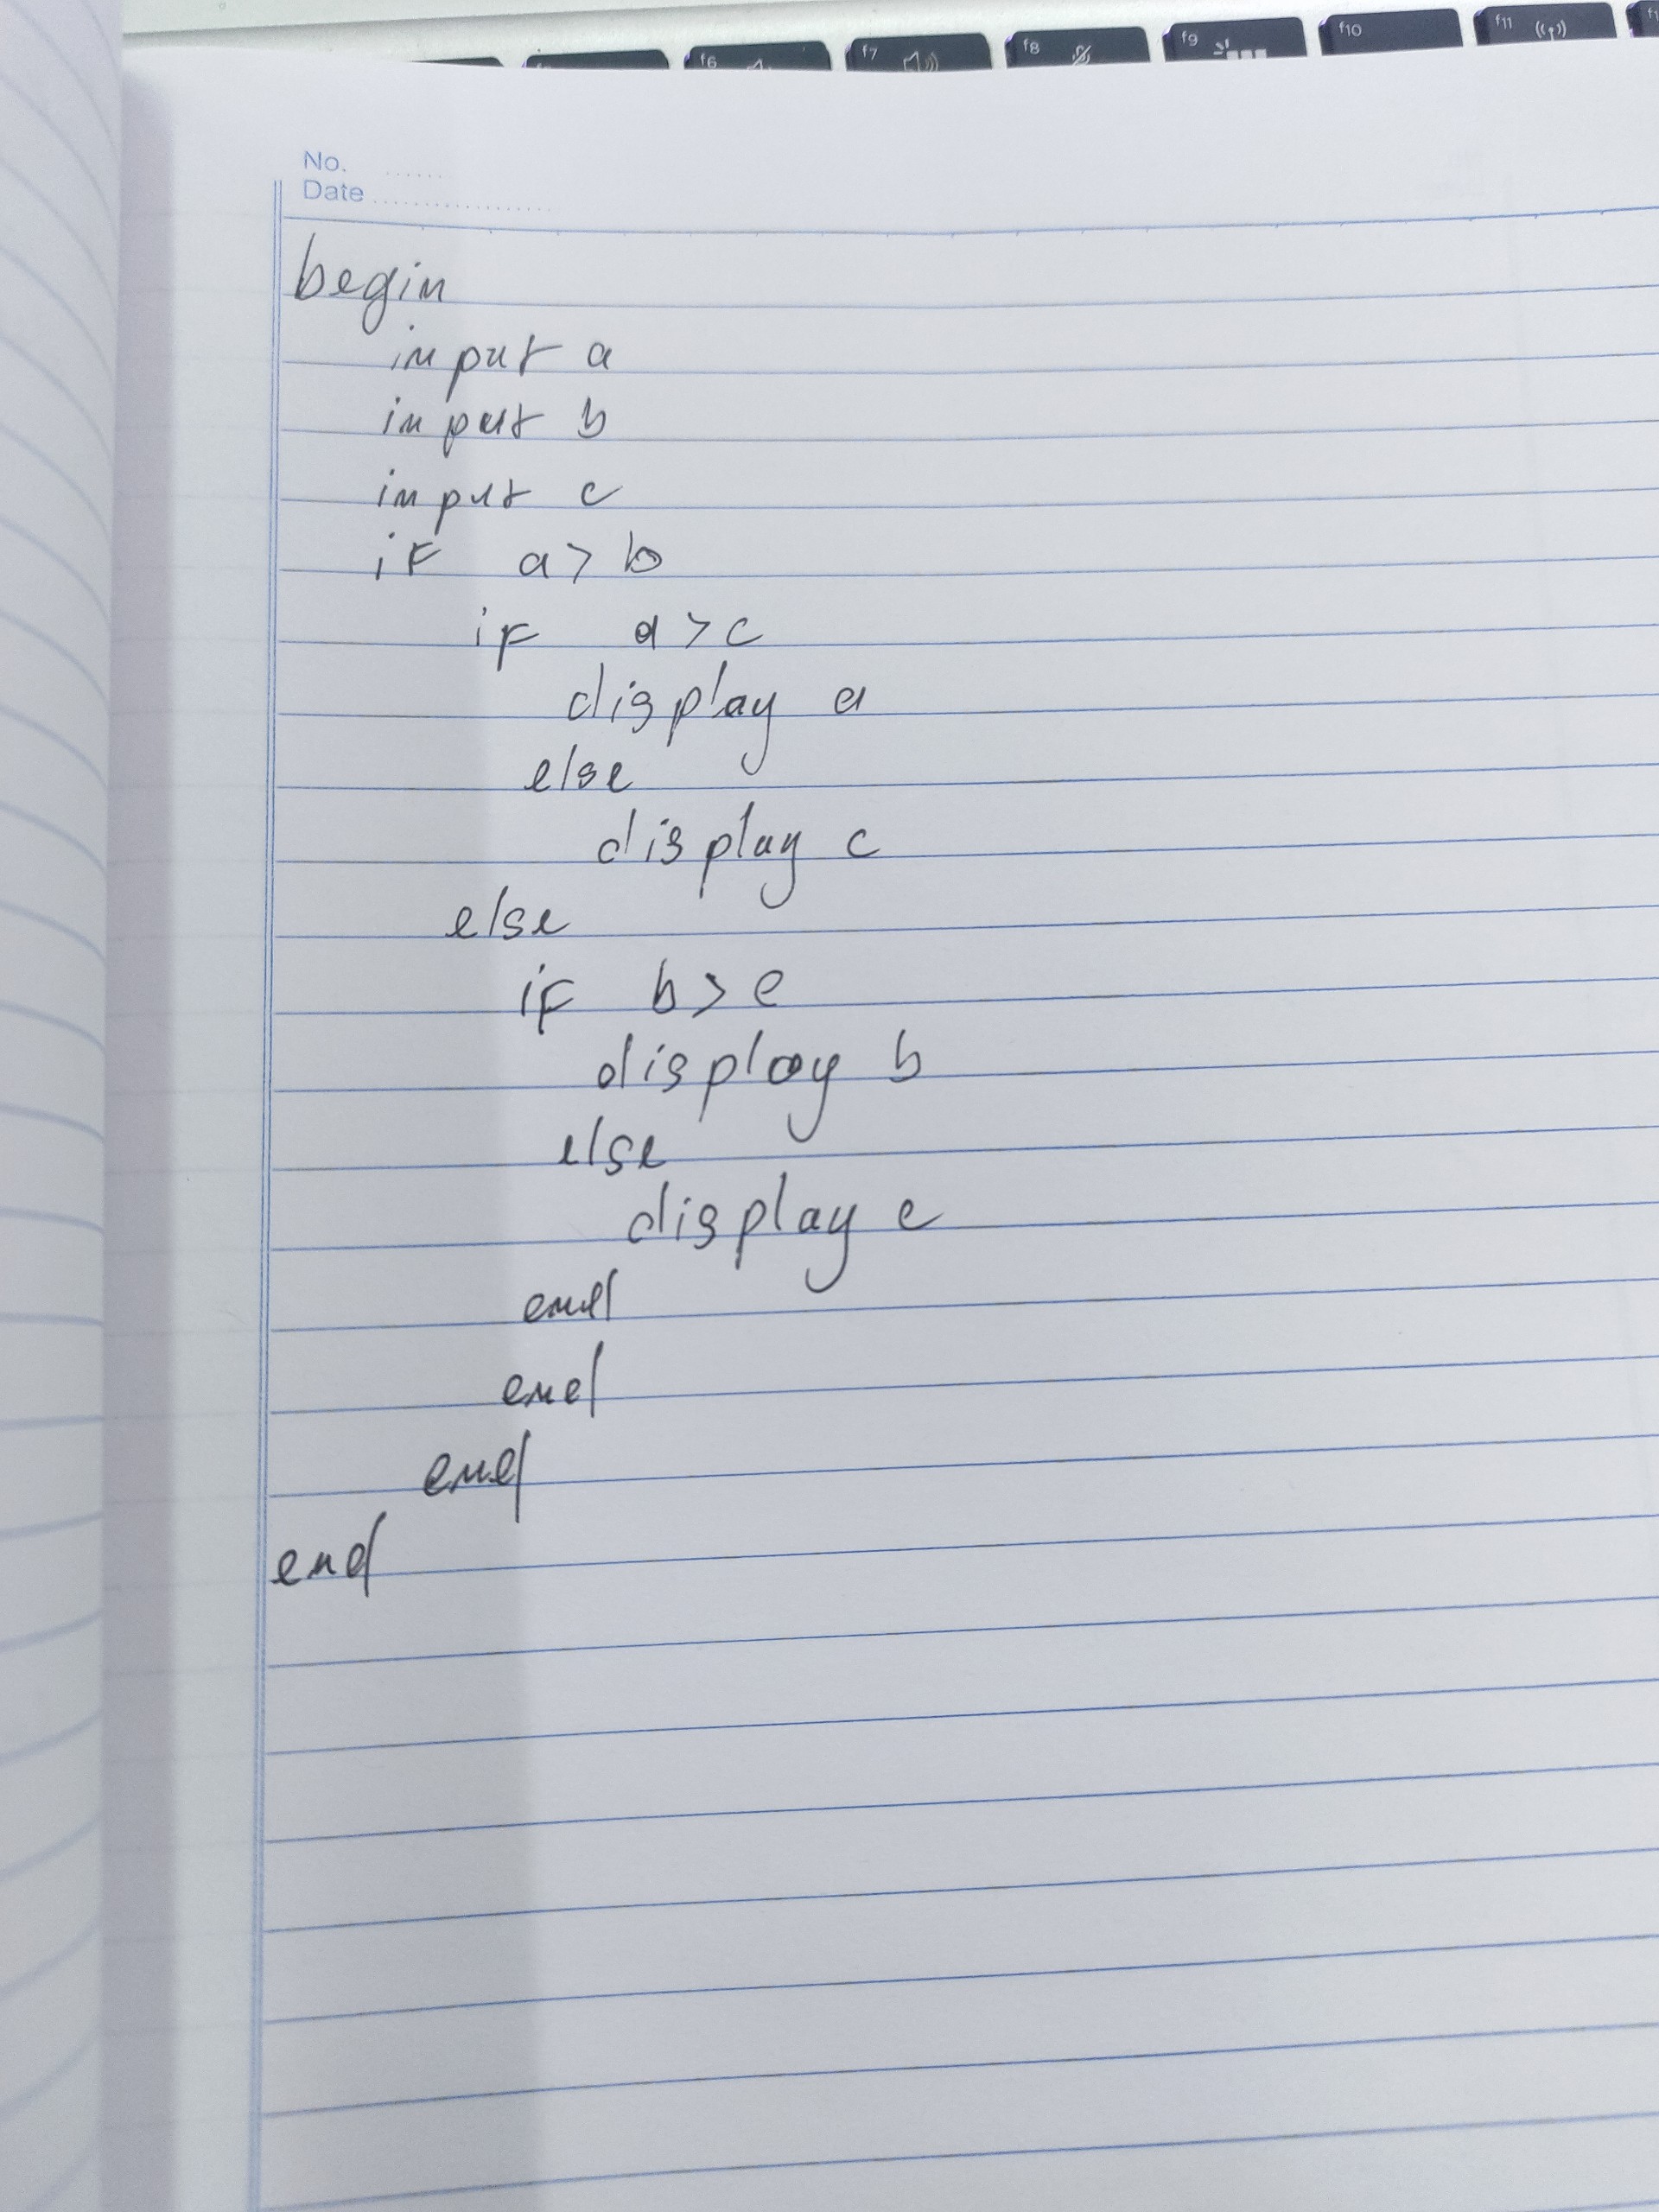 f6
f7
f8
f9
f10
f11
No.
Date
begin
input a
input b
input c
if a > b
if a > c
display a
else
display c
else
if b > c
display b
else
display c
end
end
end
end